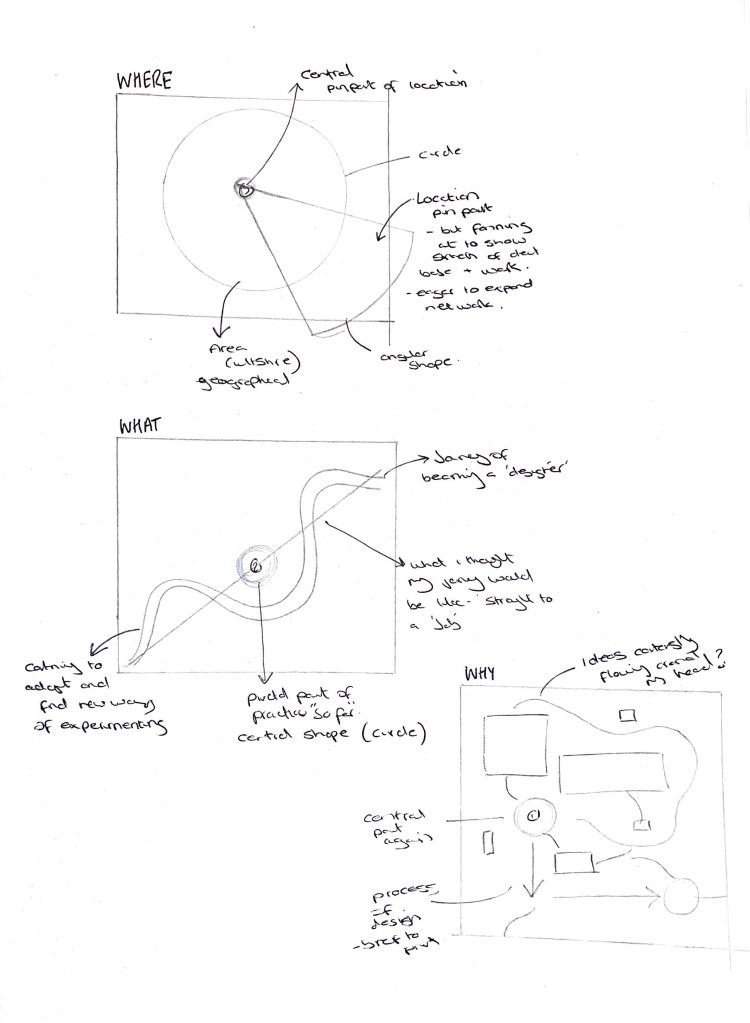 WHERE
central
pinpoint of location
circle
Location
pin point
- but fanning
out to show
stretch of client
base + work.
- eager to expand
network.
Area
(wiltshire)
geographical
angular
shape.
WHAT
Journey of
becoming a 'designer'
what i thought
my journey would
be like - 'straight to
a 'job'
continuing to
adapt and
find new ways
of experimenting
pivotal part of
practice "so far".
central shape (circle)
WHY
ideas constantly
flowing around
my head?
central
part
again
process
of
design
- brief to
print